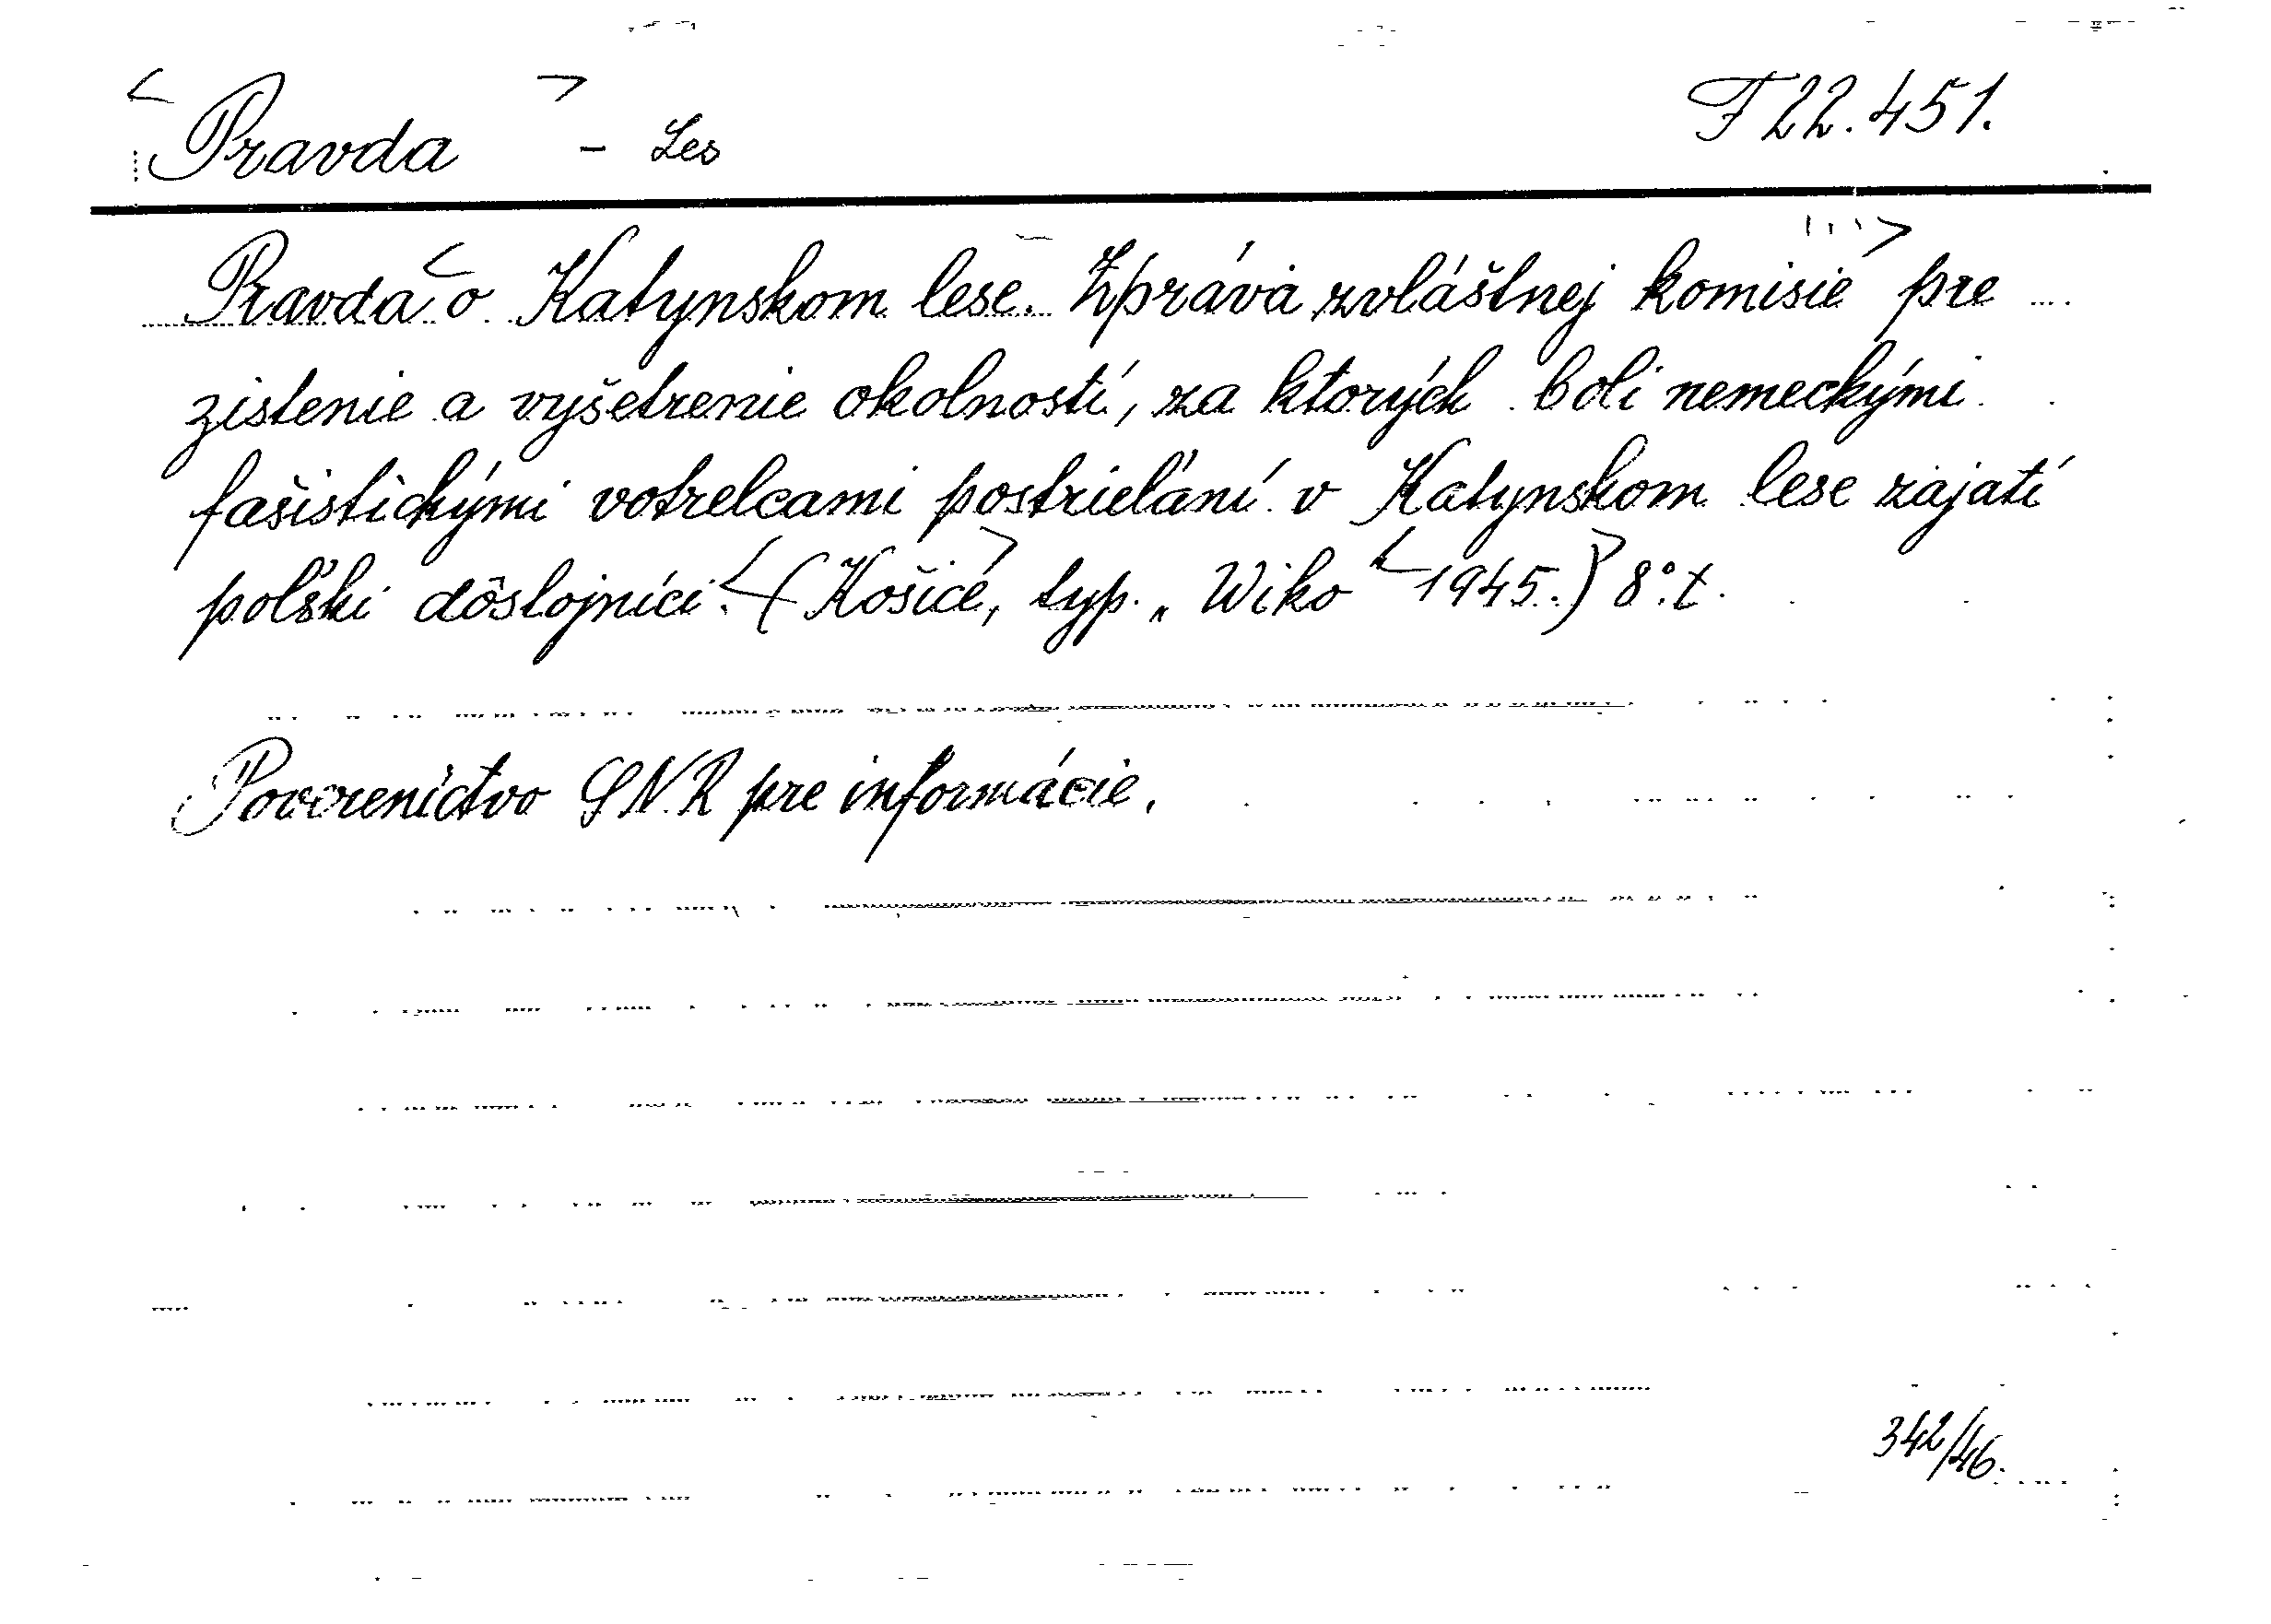 < Pravda > - Les F 22.451.
Pravda < o Katynskom lese. Zpráva zvláštnej komisie ...> pre
zistenie a vyšetrenie okolností, za ktorých boli nemeckými
fašistickými votrelcami postrieľaní v Katynskom lese zajatí
poľski dôstojníci. < (Košice, > typ. „Wiko < 1945.) > 8°. t.
Povereníctvo SNR pre informácie.
342/46.